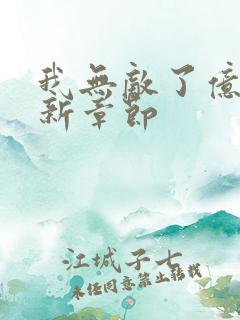 我無敵了億
新章節
江城子七
未经同意禁止转载